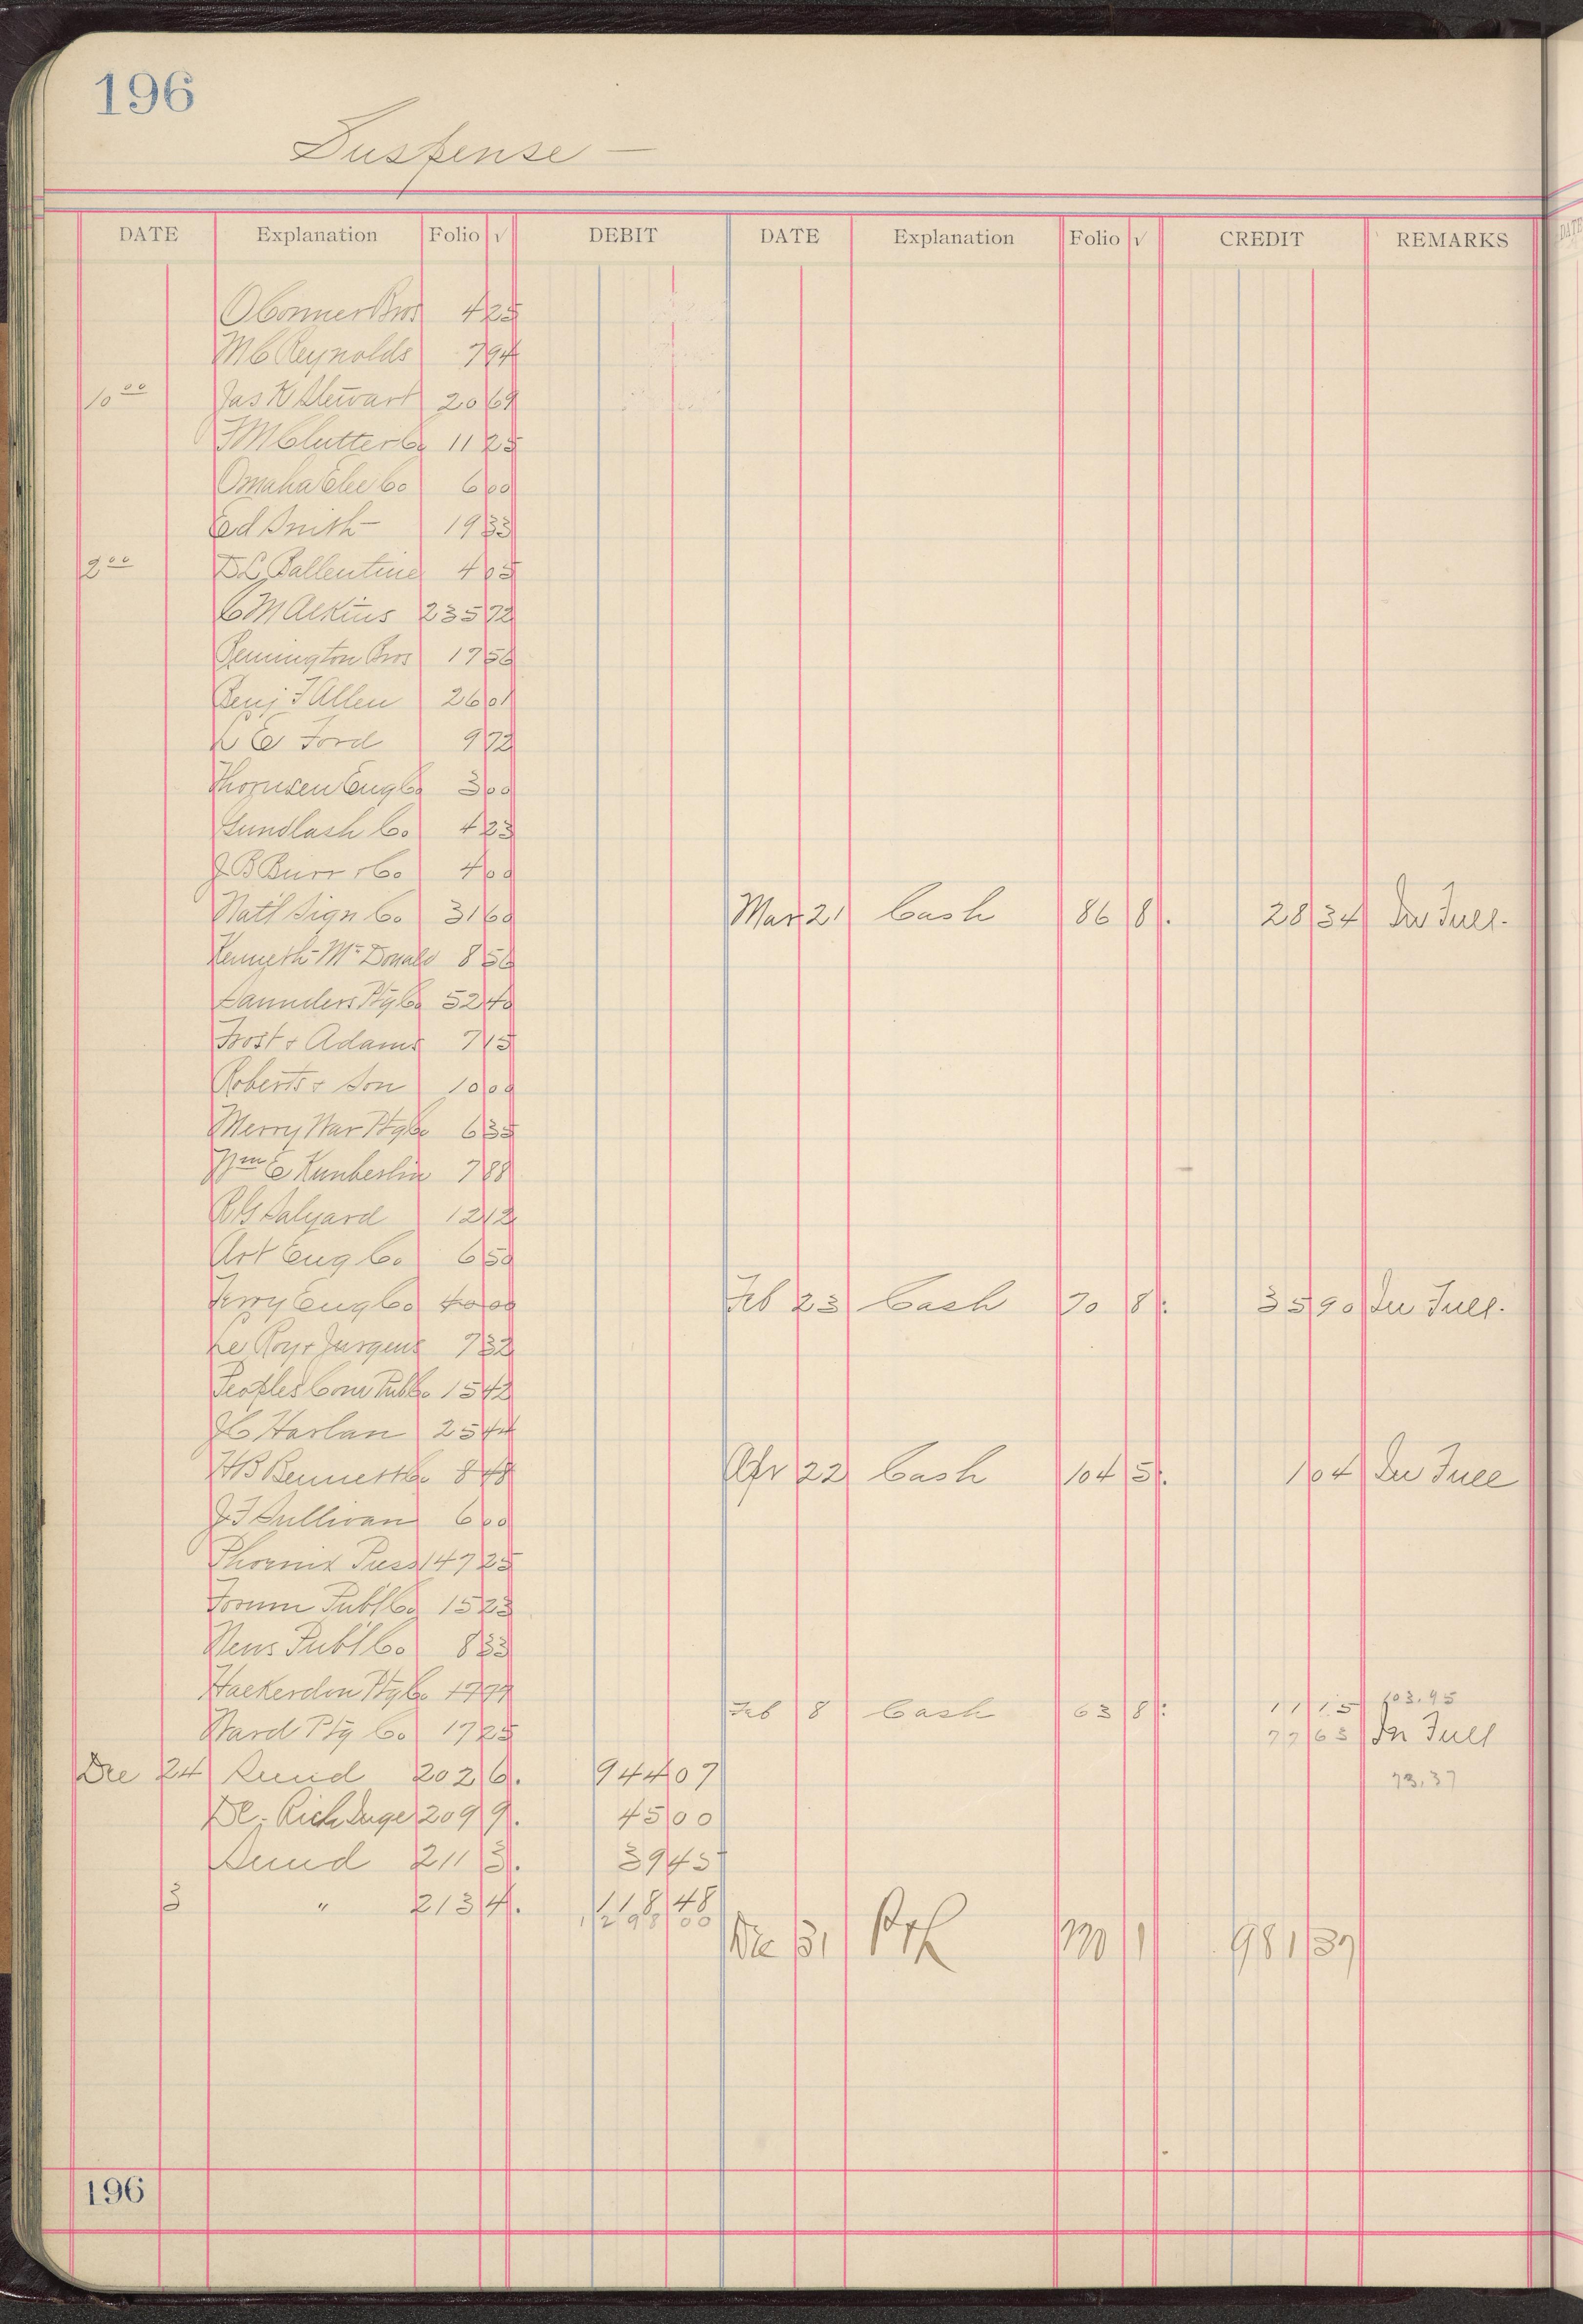 196
Suspense —
DATE Explanation Folio √ DEBIT DATE Explanation Folio √ CREDIT REMARKS
O'Conner Bros 4 25
M C Reynolds 7 94
10 00 Jas K Stewart 20 69
F M Clutter Co 11 25
Omaha Elec Co 6 00
Ed Smith 19 33
2 00 D L Ballentine 4 05
C M Alkins 235 72
Pennington Bros 17 56
Benj F Allen 26 01
L E Ford 9 72
Thomsen Eng Co 3 00
Gundlash Co. 4 23
J B Burr & Co 4 00
Nat'l Sign Co. 31 60 Mar 21 Cash 86 8 28 34 In Full.
Kenneth McDonald 8 56
Saunders Ptg Co 52 40
Frost & Adams 7 15
Roberts & Son 10 00
Merry War Ptg Co 6 35
Wm E 7 88
R G Salyard 12 12
Art Eng Co. 6 50
Terry Eng Co 40 00 Feb 23 Cash 70 8 35 90 In Full.
Le Roy & Jurgens 7 32
Peoples Com Pub Co 15 42
J C Harlan 25 44
H B Bennett Co 8 48 Apr 22 Cash 104 5 1 04 In Full
J F Sullivan 6 00
Phoenix Press 147 25
Forum Publ Co 15 23
News Publ Co 8 33
Ptg Co 17 79 103.95
Feb 8 Cash 63 8 11 15
Ward Ptg Co 17 25 77 63 In Full
Dec 24 Sund 202 6. 944 07 73.37
209 9. 45 00
Sund 211 3. 39 45
3 " 213 4. 118 48
1298 00
Dec 31 P & L 170 1 981 37
196